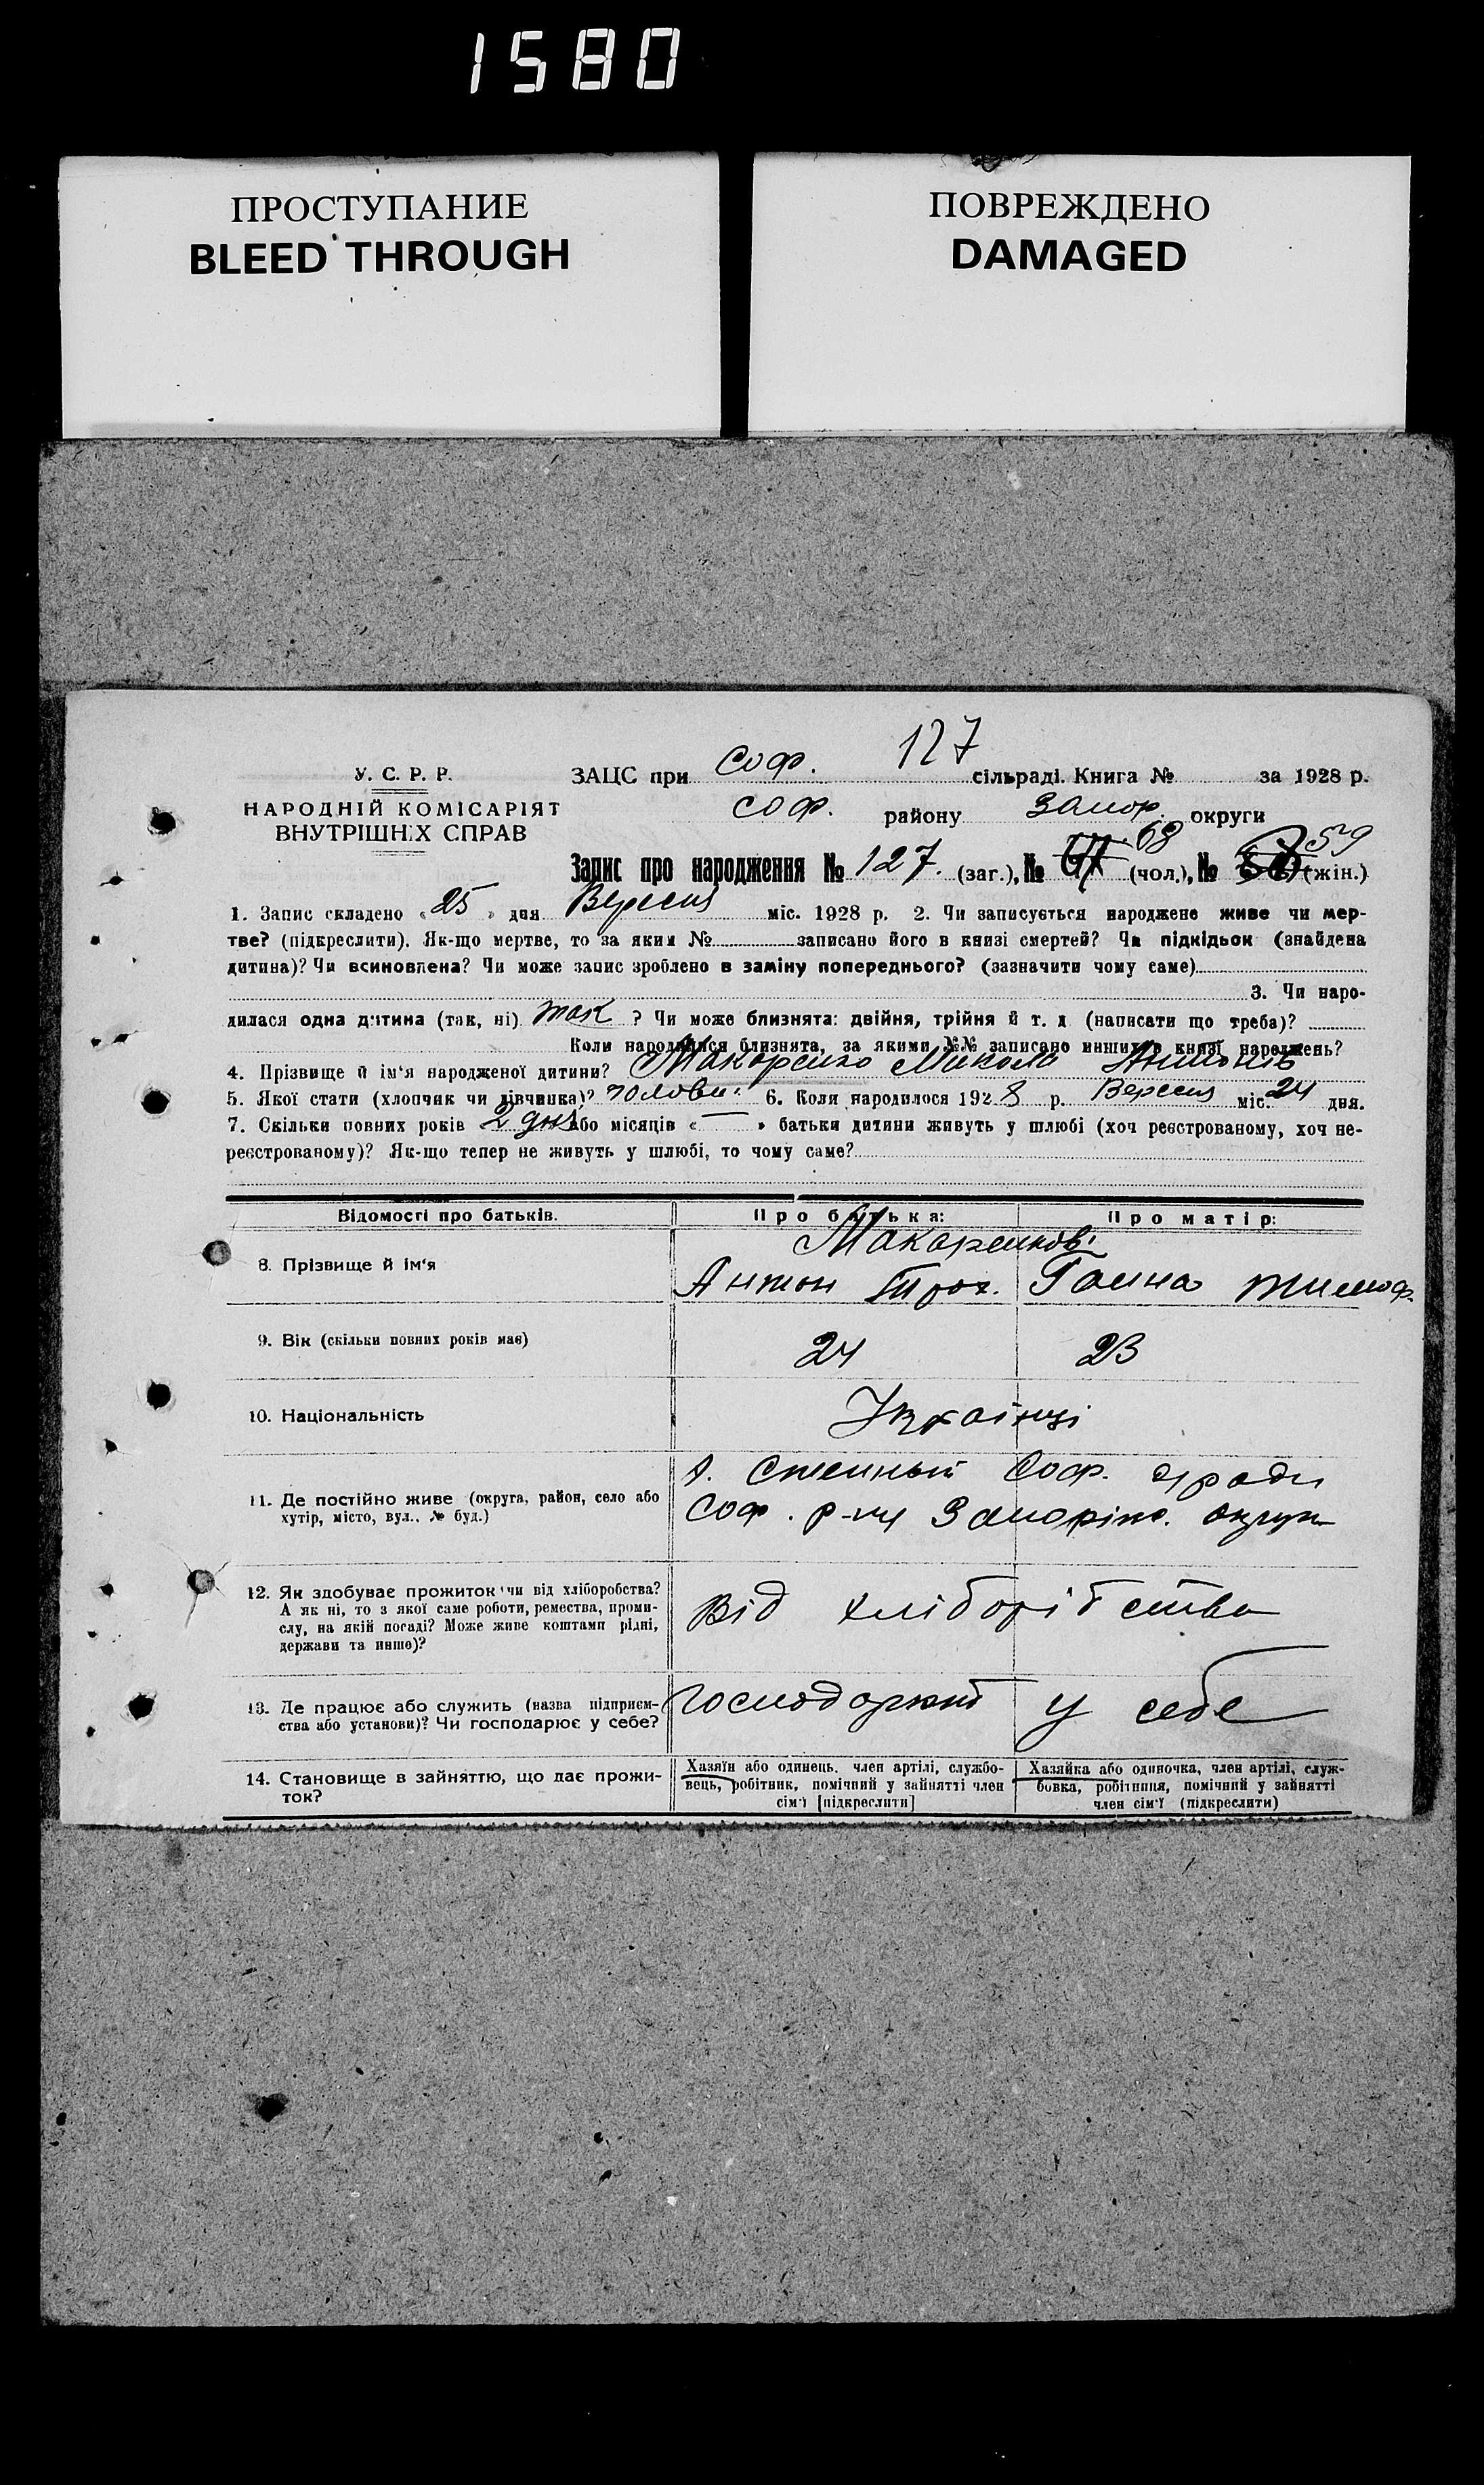 1580
ПРОСТУПАНИЕ
BLEED THROUGH
ПОВРЕЖДЕНО
DAMAGED
127
У. С. Р. Р.
НАРОДНІЙ КОМІСАРІЯТ
ВНУТРІШНІХ СПРАВ
ЗАЦС при Соф. сільраді. Книга № за 1928 р.
Соф. району Запор. округи
Запис про народження № 127. (заг.), № 68 (чол.), № 59 (жін.)
1. Запис складено « 25 » дня Вересня міс. 1928 р. 2. Чи записується народжене живе чи мер-
тве? (підкреслити). Як-що мертве, то за яким № записано його в книзі смертей? Чи підкідьок (знайдена
дитина)? Чи всиновлена? Чи може запис зроблено в заміну попереднього? (зазначити чому саме)
3. Чи наро-
дилася одна дитина (так, ні) так ? Чи може близнята: двійня, трійня й т. д (написати що треба)?
Коли народилися близнята, за якими №№ записано инших в книзі народжень?
4. Прізвище й ім'я народженої дитини? Макаренко Микола Антонів
5. Якої стати (хлопчик чи дівчинка)? чолові. 6. Коли народилося 1928 р. Вересня міс. 24 дня.
7. Скільки повних років 2 дня або місяців « — » батьки дитини живуть у шлюбі (хоч реєстрованому, хоч не-
реєстрованому)? Як-що тепер не живуть у шлюбі, то чому саме?
Відомості про батьків. Про батька: Про матір:
Макаренкові
8. Прізвище й ім'я Антон Троx. Ганна Тимоф.
9. Вік (скільки повних років має) 24 23
10. Національність Українці
11. Де постійно живе (округа, район, село або
хутір, місто, вул., № буд.)
Степный Соф. с/ради
Соф. р-ну Запоріж. округи
12. Як здобуває прожиток чи від хліборобства?
А як ні, то з якої саме роботи, ремества, проми-
слу, на якій посаді? Може живе коштами рідні,
держави та инше)?
Від хліборібства
13. Де працює або служить (назва підприєм-
ства або установи)? Чи господарює у себе?
у себе
14. Становище в зайняттю, що дає прожи-
ток?
Хазяїн або одинець, член артілі, службо-
вець, робітник, помічний у зайнятті член
сім'ї [підкреслити]
Хазяйка або одиночка, член артілі, служ-
бовка, робітниця, помічний у зайнятті
член сім'ї (підкреслити)